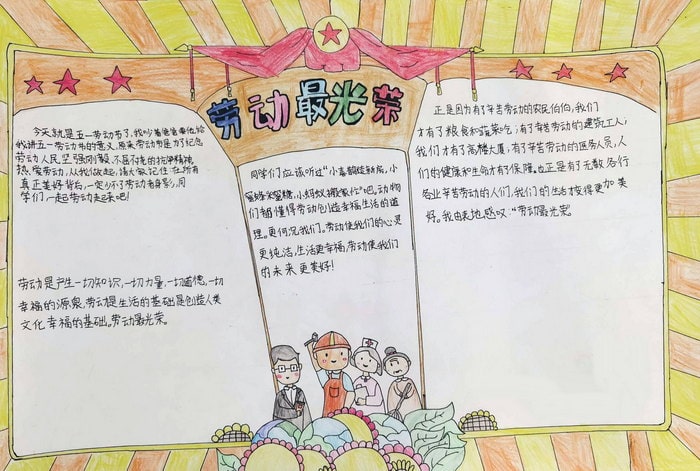 劳动最光荣
今天就是五一劳动节了,我吵着爸爸要他给
我讲五一劳动节的意义,原来劳动节是为了纪念
劳动人民坚强刚毅、不屈不挠的抗争精神。
热爱劳动,从我做起,请大家记住:在所有
真正美好背后,一定少不了劳动者身影,同
学们,一起劳动起来吧!
劳动是产生一切知识,一切力量,一切道德,一切
幸福的源泉。劳动是生活的基础是创造人类
文化幸福的基础。劳动最光荣。
同学们应该听过“小喜鹊造新房,小
蜜蜂采蜜糖,小蚂蚁搬家忙”吧,动物
们都懂得劳动创造幸福生活的道
理。更何况我们。劳动使我们的心灵
更纯洁,生活更幸福,劳动使我们
的未来更美好!
正是因为有了辛苦劳动的农民伯伯,我们
才有了粮食和蔬菜吃;有了辛苦劳动的建筑工人,
我们才有了高楼大厦;有了辛苦劳动的医务人员,人
们的健康和生命才有了保障。也正是有了无数各行
各业辛苦劳动的人们,我们的生活才变得更加美
好。我由衷地感叹:“劳动最光荣”。